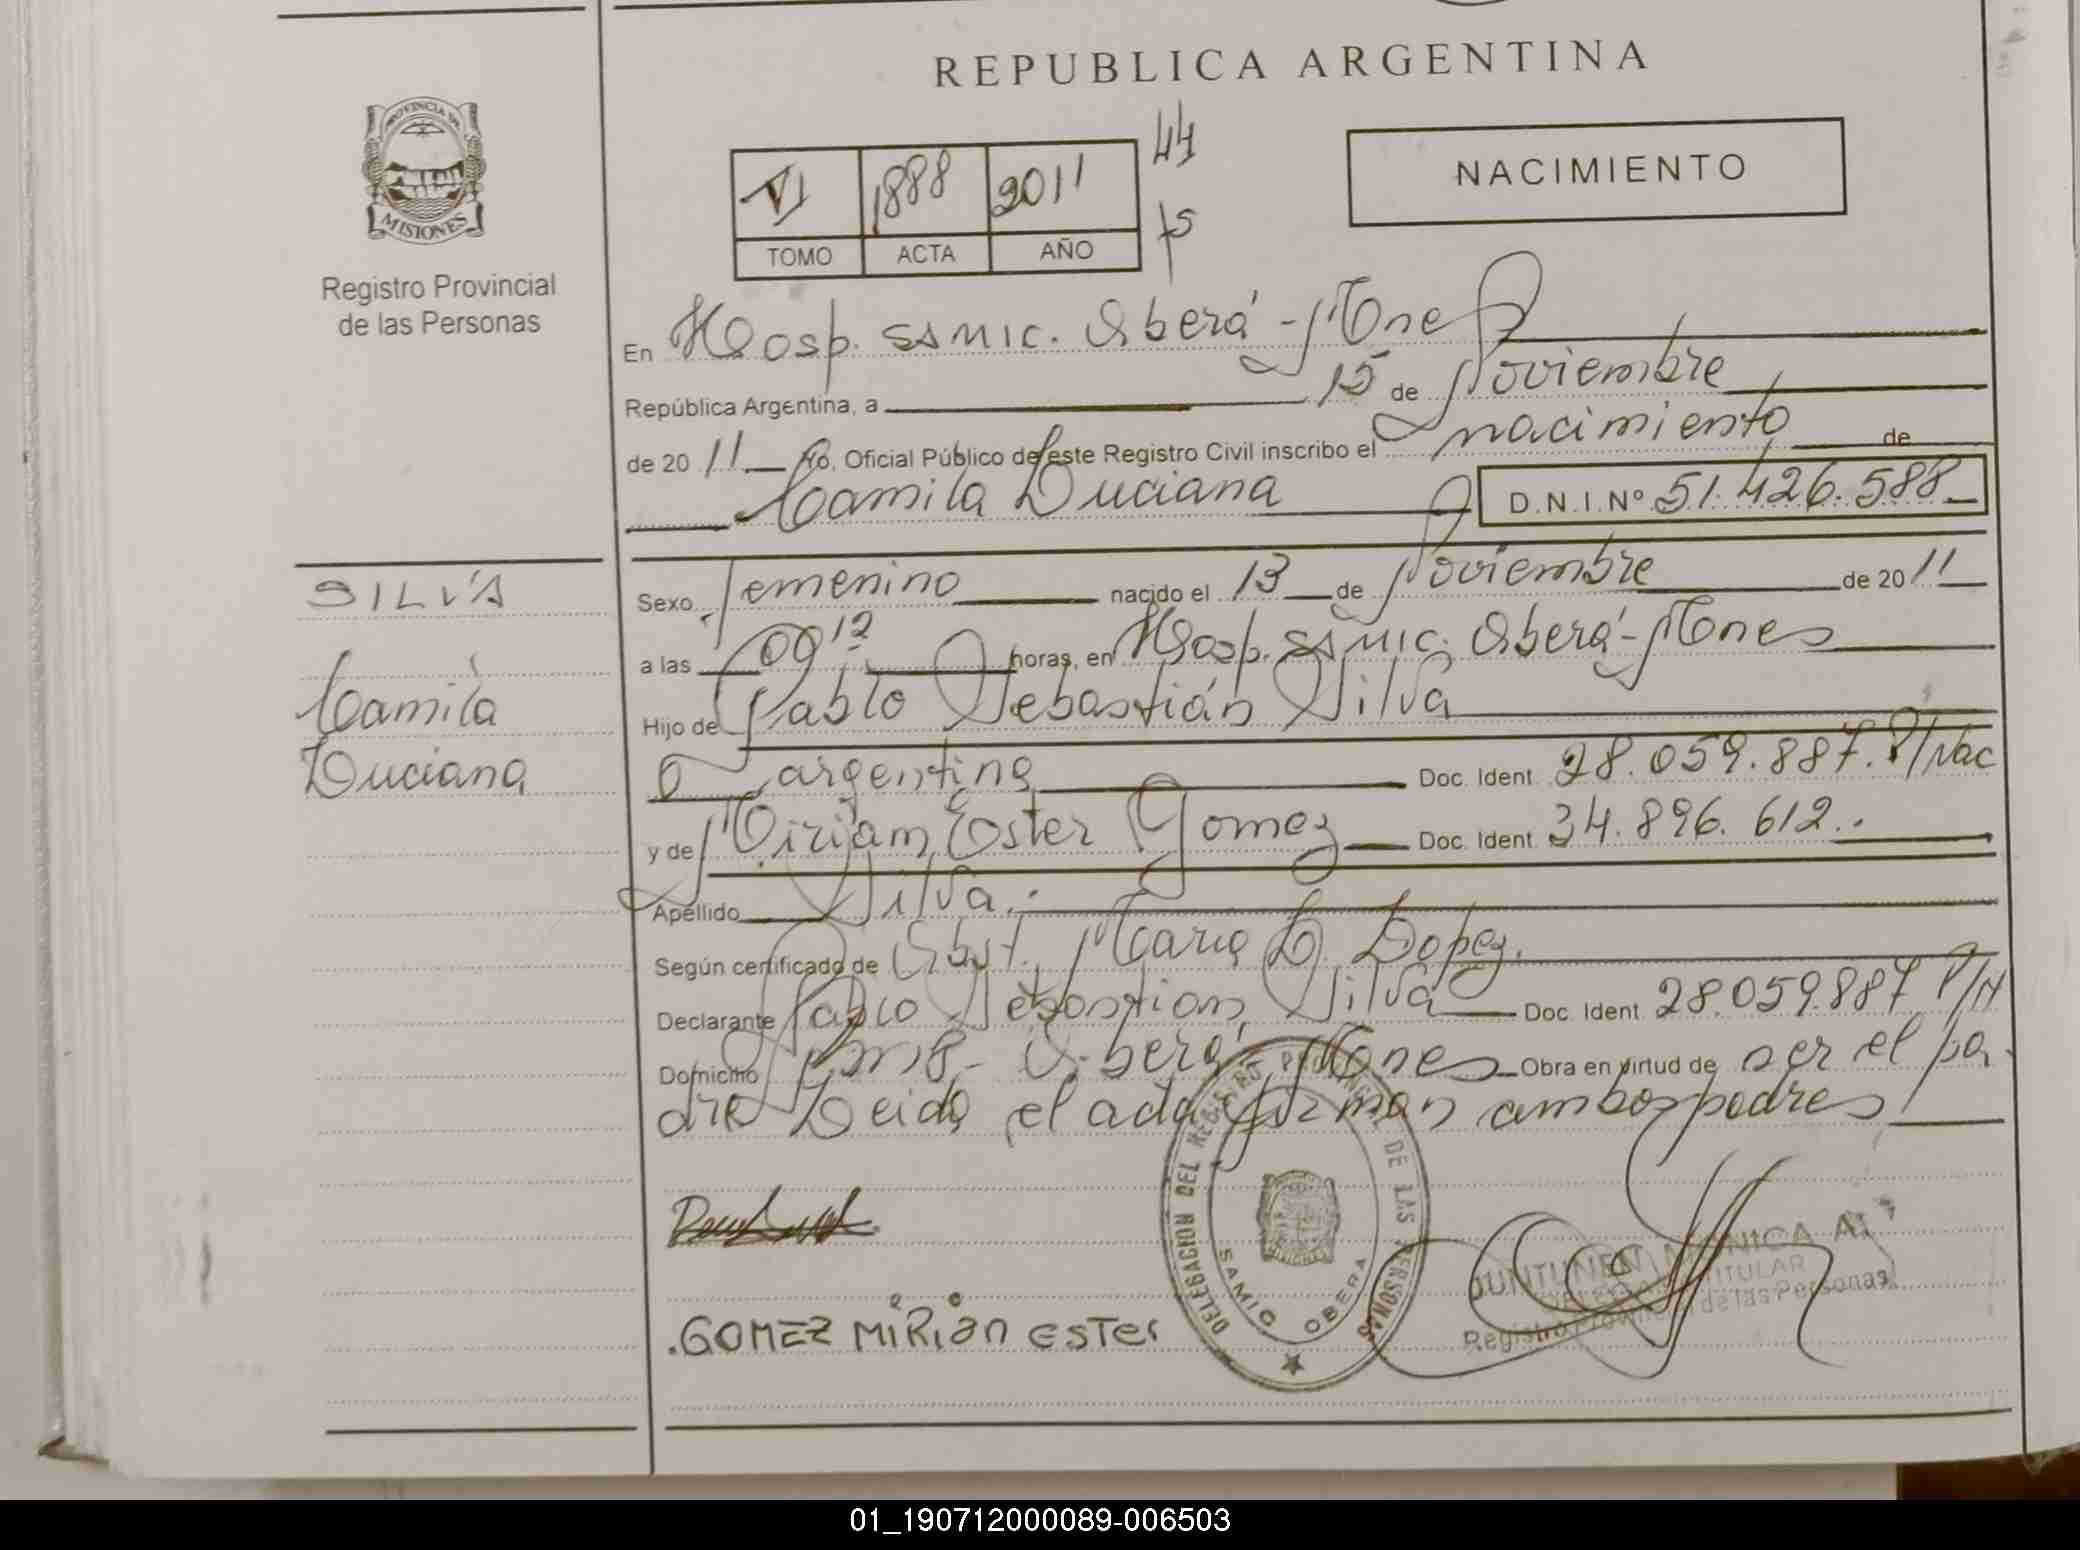 REPUBLICA ARGENTINA
PROVINCIA DE
MISIONES
Registro Provincial
de las Personas
VI 1888 2011
TOMO ACTA AÑO
44
75
NACIMIENTO
En Hosp. SAMIC. Oberá - Mnes
República Argentina, a 15 de Noviembre
de 2011 Yo, Oficial Público de este Registro Civil inscribo el nacimiento de
Camila Luciana D.N.I.Nº 51.426.588
SILVA
Camila
Luciana
Sexo femenino nacido el 13 de Noviembre de 2011
a las 09 12 horas, en Hosp. SAMIC. Oberá - Mnes
Hijo de Pablo Sebastián Silva
argentino Doc. Ident. 28.059.887. P/Nac
y de Mirian Ester Gomez Doc. Ident. 34.896.612.
Apellido Silva.
Según certificado de Obst. Maria L. Lopez.
Declarante Pablo Sebastian Silva Doc. Ident. 28.059.887 P/N
Domicilio Oberá, Mnes Obra en virtud de ser el pa
dre Leida el acta firman ambos padres
GOMEZ MIRIAN ESTER
DELEGACION DEL REGISTRO PROVINCIAL DE LAS PERSONAS
SAMIC OBERA
JUNTUNEN MONICA A.
TITULAR
Registro Provincial de las Personas
01_190712000089-006503